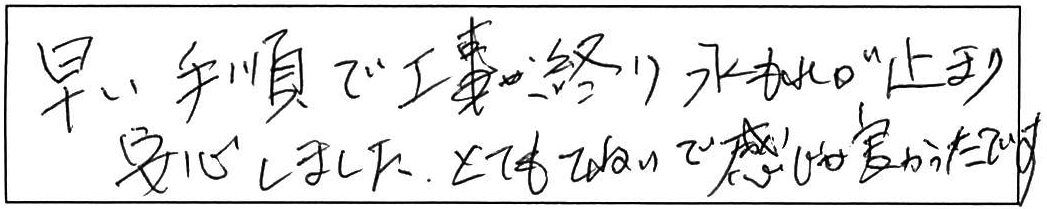 早い手順で工事が終り水もれが止まり
安心しました.とてもていねいで感じが良かったです